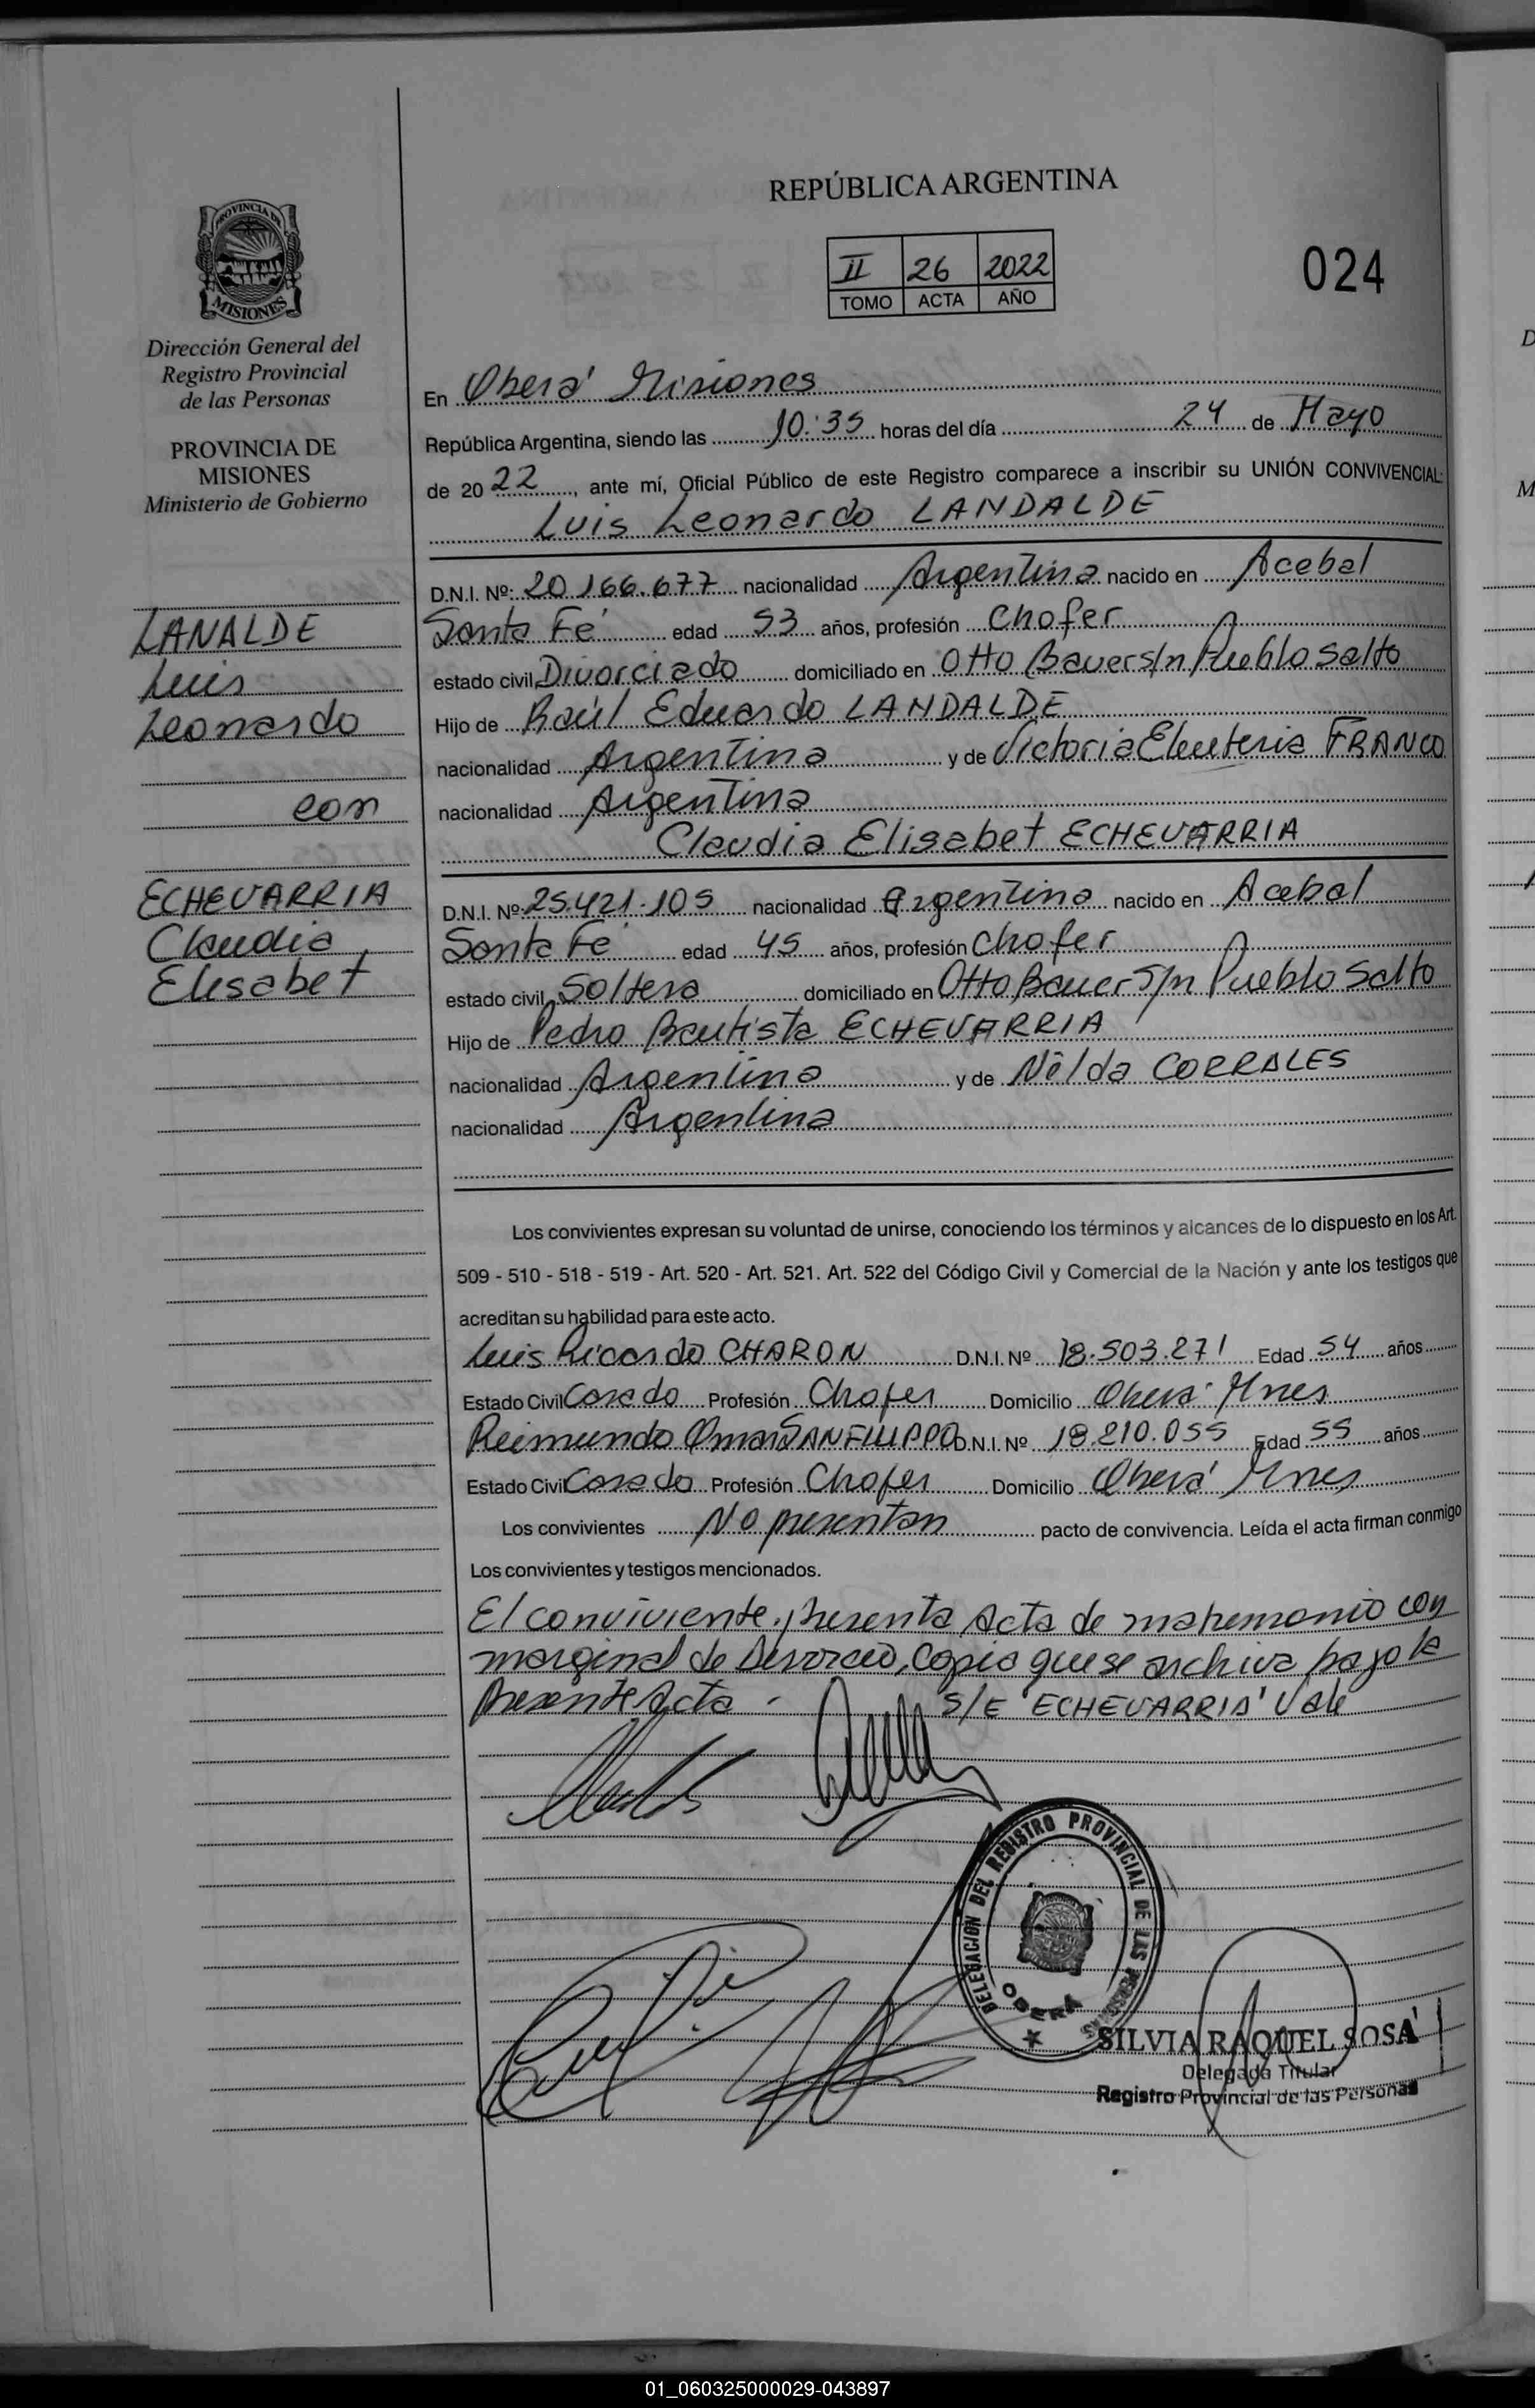 PROVINCIA DE
MISIONES
Dirección General del
Registro Provincial
de las Personas
PROVINCIA DE
MISIONES
Ministerio de Gobierno
LANALDE
Luis
Leonardo
con
ECHEVARRIA
Claudia
Elisabet
REPÚBLICA ARGENTINA
II 26 2022
TOMO ACTA AÑO
024
En Oberá Misiones
República Argentina, siendo las 10:35 horas del día 24 de Mayo
de 2022, ante mí, Oficial Público de este Registro comparece a inscribir su UNIÓN CONVIVENCIAL:
Luis Leonardo LANDALDE
D.N.I. Nº: 20.166.677 nacionalidad Argentina nacido en Acebal
Santa Fé edad 53 años, profesión Chofer
estado civil Divorciado domiciliado en Otto Bauer s/n Pueblo Salto
Hijo de Raúl Eduardo LANDALDE
nacionalidad Argentina y de Victoria Eleuteria FRANCO
nacionalidad Argentina
Claudia Elisabet ECHEVARRIA
D.N.I. Nº: 25.421.105 nacionalidad Argentina nacido en Acebal
Santa Fe edad 45 años, profesión Chofer
estado civil Soltera domiciliado en Otto Bauer S/n Pueblo Salto
Hijo de Pedro Bautista ECHEVARRIA
nacionalidad Argentina y de Nélda CORRALES
nacionalidad Argentina
Los convivientes expresan su voluntad de unirse, conociendo los términos y alcances de lo dispuesto en los Art.
509 - 510 - 518 - 519 - Art. 520 - Art. 521. Art. 522 del Código Civil y Comercial de la Nación y ante los testigos que
acreditan su habilidad para este acto.
Luis Ricardo CHARON D.N.I. Nº 18.503.271 Edad 54 años
Estado Civil Casado Profesión Chofer Domicilio Oberá Mnes
Reimundo Omar SANFILIPPO D.N.I. Nº 18.210.055 Edad 55 años
Estado Civil Casado Profesión Chofer Domicilio Oberá Mnes
Los convivientes No presentan pacto de convivencia. Leída el acta firman conmigo
Los convivientes y testigos mencionados.
El conviviente presenta Acta de matrimonio con
marginal de Divorcio, Copia que se archiva bajo la
presente Acta. S/E "ECHEVARRIA" Vale
DELEGACION DEL REGISTRO PROVINCIAL DE LAS PERSONAS
OBERÁ
SILVIA RAQUEL SOSA
Delegada Titular
Registro Provincial de las Personas
01_060325000029-043897